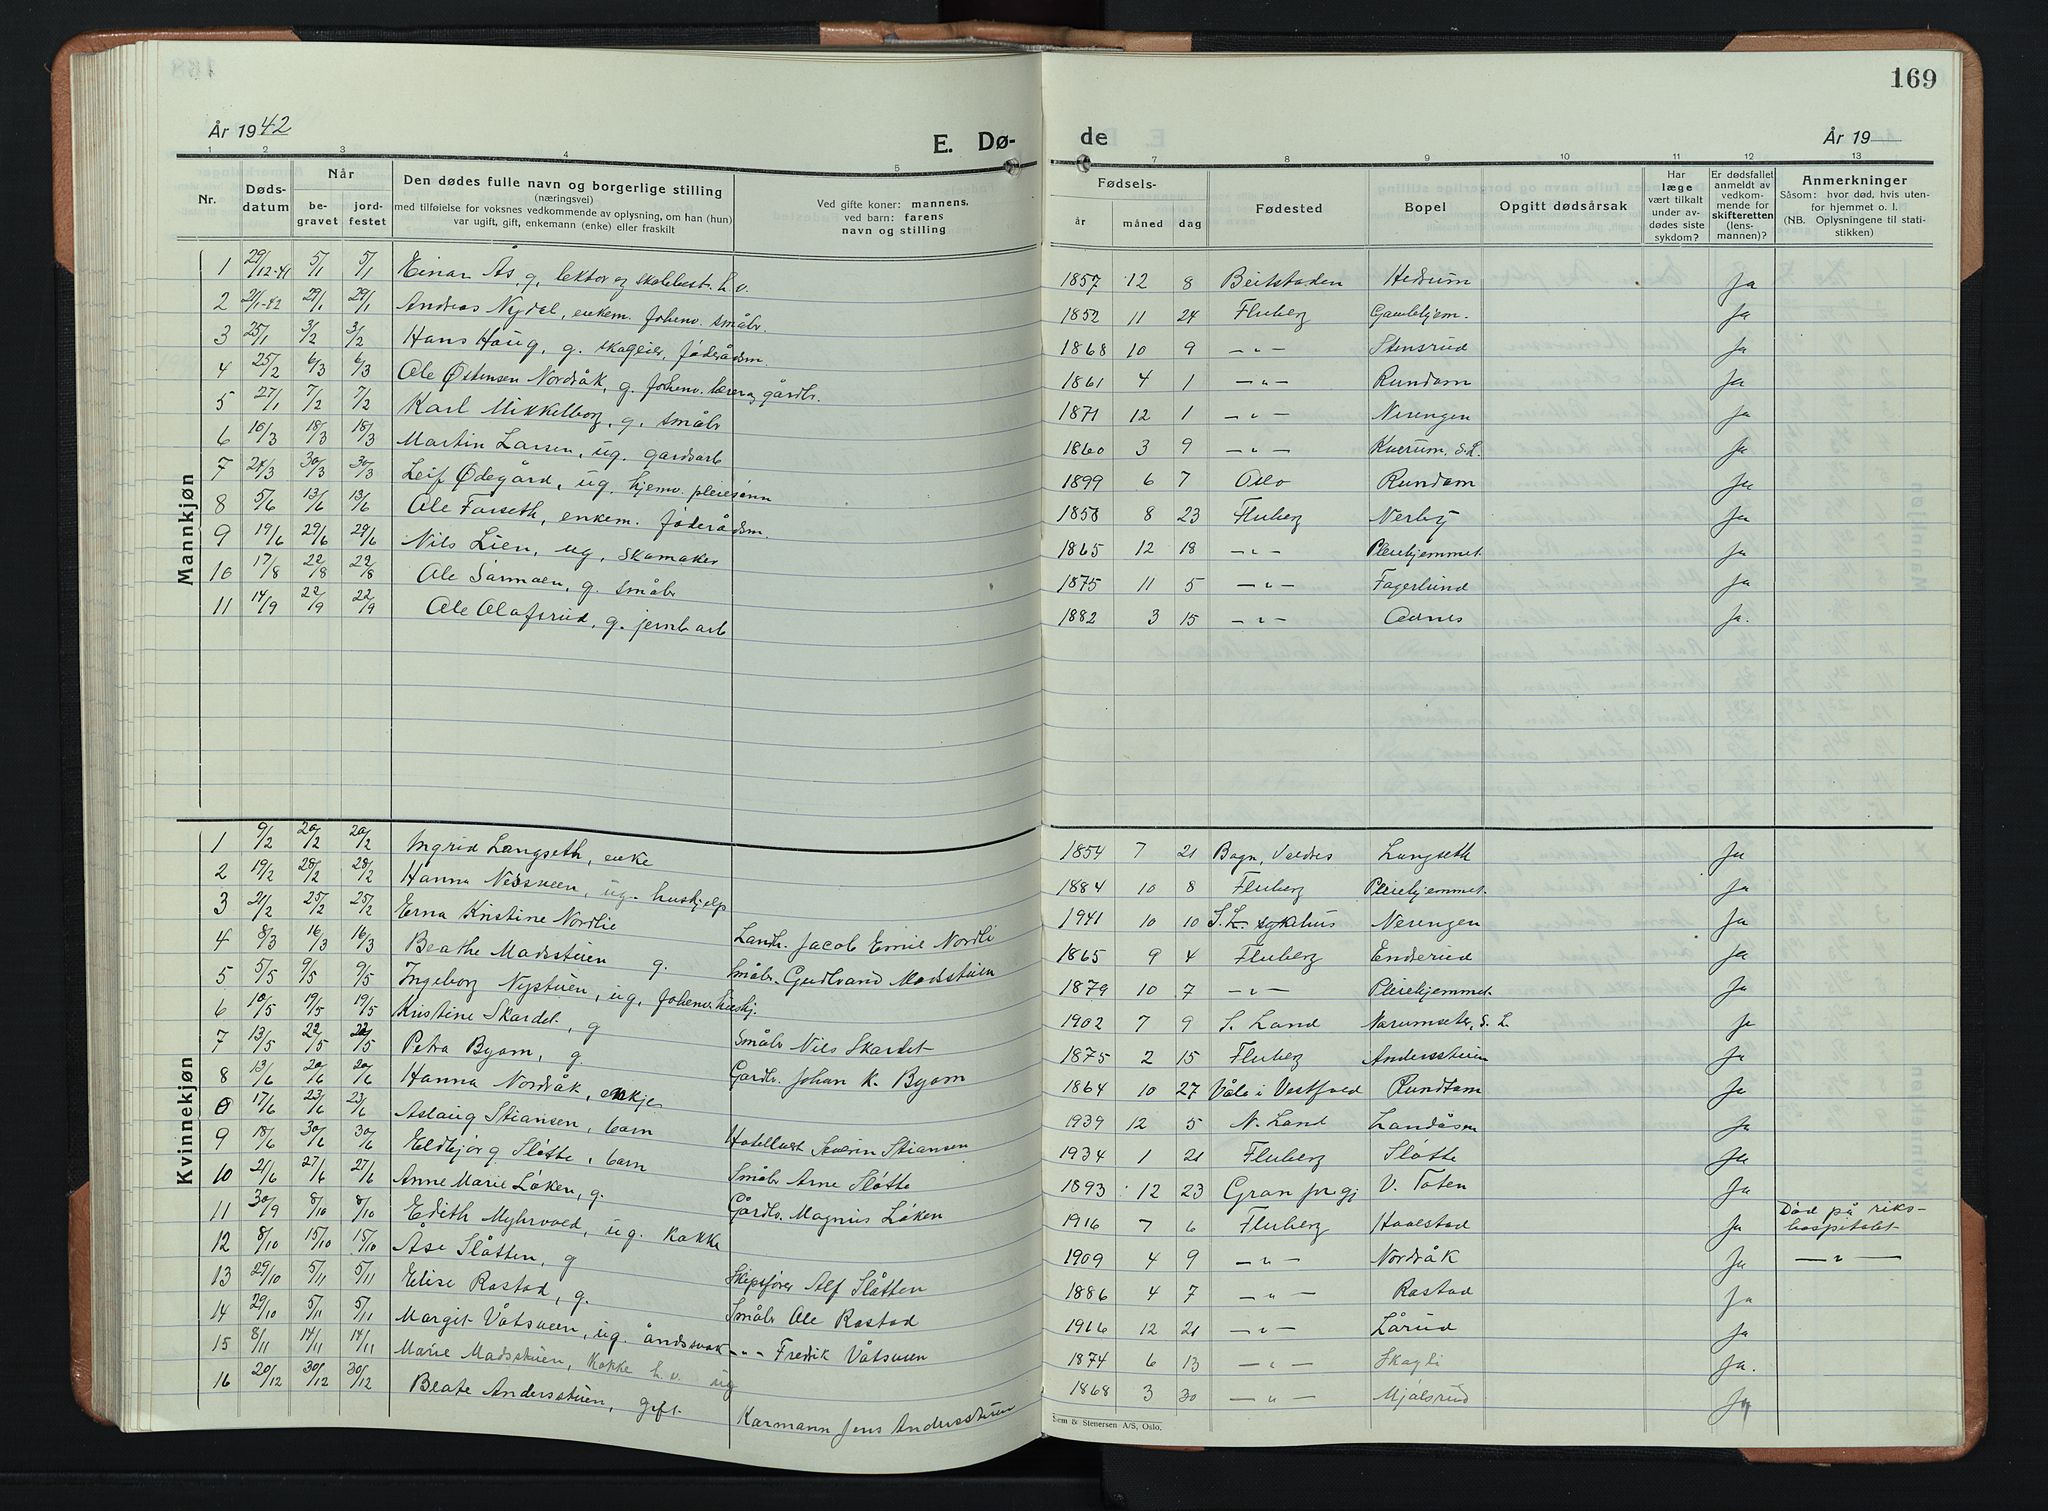 169
År 1942
E. Dø-
de
År 19
1 2 3 4 5 7 8 9 10 11 12 13
Nr.
Døds-
datum
Når
be-
gravet
jord-
festet
Den dødes fulle navn og borgerlige stilling
(næringsvei)
med tilføielse for voksnes vedkommende av oplysning, om han (hun)
var ugift, gift, enkemann (enke) eller fraskilt
Ved gifte koner: mannens.
ved barn: farens
navn og stilling
Fødsels-
år måned dag
Fødested
Bopel
Opgitt dødsårsak
Har
læge
vært tilkalt
under av-
dødes siste
sykdom?
Er dødsfallet
anmeldt av
vedkom-
mende for
skifteretten
(lens-
mannen)?
Anmerkninger
Såsom: hvor død, hvis uten-
for hjemmet o. l.
(NB. Oplysningene til stati-
stikken)
Mannkjøn
1 29/12-41 5/1 5/1 Einar Ås, g, lektor og skolebestr. h.v. 1857 12 8 Beitstaden Hedrum Ja
2 21/1-42 29/1 29/1 Andreas Nydal, enkem. forhenv. småbr. 1852 11 24 Fluberg Gamlehjem. Ja
3 25/1 3/2 3/2 Hans Haug, g. skogeier, føderådsm. 1868 10 9 -"- Stensrud Ja
4 25/2 6/3 6/3 Ole Østensen Nordråk, g. forhenv. lærer og gårdbr. 1861 4 1 -"- Rundom Ja
5 27/1 7/2 7/2 Karl Mikkelborg, g. småbr 1871 12 1 -"- Nerengen Ja
6 10/3 18/3 18/3 Martin Larsen, ug. gardsarb 1860 3 9 -"- Kverum, S.L. Ja
7 24/3 30/3 30/3 Leif Ødegård, ug, hjemv. pleiesønn 1899 6 7 Oslo Rundom Ja
8 5/6 13/6 13/6 Ole Forseth, enkem. føderådsm. 1858 8 23 Fluberg Nerby Ja
9 19/6 29/6 29/6 Nils Lien, ug, skomaker 1865 12 18 -"- Pleiehjemmet Ja
10 17/8 22/8 22/8 Ole Sørmoen, g. småbr 1875 11 5 -"- Fagerlund Ja
11 14/9 22/9 22/9 Ole Olafsrud, g. jernb arb 1882 3 15 -"- Odnes Ja.
Kvinnekjøn
1 9/2 20/2 20/2 Ingrid Langseth, enke 1854 7 21 Bagn, Valdres Langseth Ja
2 19/2 28/2 28/2 Hanna Nessveen, ug. hushjelp 1884 10 8 Fluberg Pleiehjemmet. Ja
3 21/2 25/2 25/2 Erna Kristine Nordlie Landbr. Jacob Emil Nordli 1941 10 10 S.L. sykehus Nerengen Ja
4 8/3 16/3 16/3 Beathe Madsstuen g. Småbr. Gudbrand Madstuen 1865 9 4 Fluberg Enderud Ja
5 5/5 9/5 9/5 Ingeborg Nystuen, ug, forhenv. hushj. 1879 10 7 -"- Pleiehjemmet. Ja
6 10/5 19/5 19/5 Kristine Skardet, g Småbr Nils Skardet 1902 7 9 S. Land Narumseter, S. L. Ja
7 13/5 22/5 22/5 Petra Byom, g. Gårdbr. Johan K. Byom 1875 2 15 Fluberg Andersstuen Ja
8 13/6 20/6 20/6 Hanna Nordråk, enkje 1864 10 27 Våle i Vestfold Rundtom Ja
0 17/6 23/6 23/6 Aslaug Stiansen, barn Hotellvert Severin Stiansen 1939 12 5 N. Land Landåsen Ja
9 18/6 30/6 30/6 Eldbjørg Sløtte, barn Småbr Arne Sløtte 1934 1 21 Fluberg Sløtte Ja
10 21/6 27/6 27/6 Anne Marie Løken, g. Gårdbr. Magnus Løken 1893 12 23 Gran pr.gj V. Toten Ja
11 30/9 8/10 8/10 Edith Myhrvold, ug. Kokke 1916 7 6 Fluberg Haalstad Ja Død på riks-
hospitalet
12 8/10 15/10 15/10 Åse Slåtten, g Skipsfører Alf Slåtten 1909 4 9 -"- Nordråk Ja -"-
13 29/10 5/11 5/11 Elise Rostad, g. Småbr Ole Rostad 1886 4 7 -"- Rostad Ja
14 29/10 5/11 5/11 Margit Våtsveen, ug. åndssvak -"- Fredrik Våtsveen 1916 12 21 -"- Lårud Ja
15 8/11 14/11 14/11 Marie Madsstuen, Kokke h.v. ug 1874 6 13 -"- Skagli Ja.
16 20/12 30/12 30/12 Beate Andersstuen, gift Kármann Jens Andersstuen 1868 3 30 -"- Mjålsrud Ja
Sem & Stenersen A/S, Oslo.